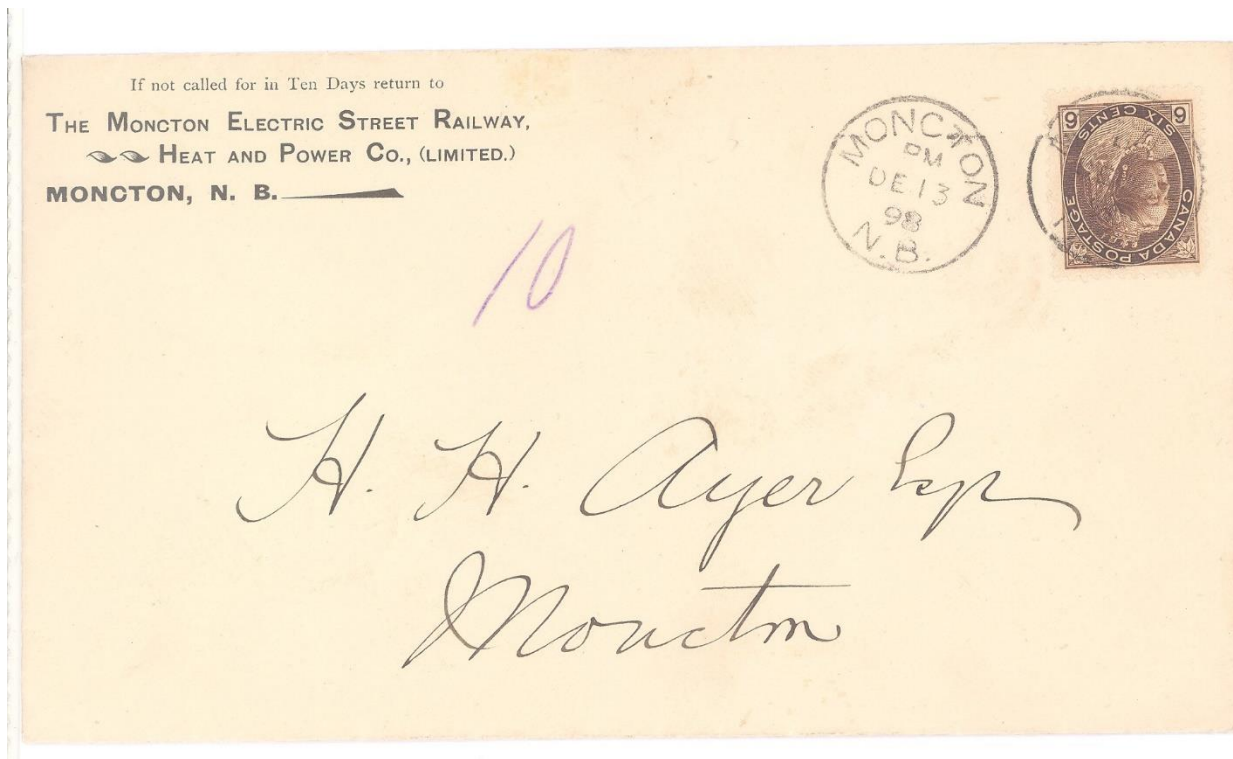 If not called for in Ten Days return to
THE MONCTON ELECTRIC STREET RAILWAY,
HEAT AND POWER CO., (LIMITED.)
MONCTON, N. B.
MONCTON
PM
DE 13
98
N.B.
CANADA POSTAGE
SIX CENTS
6 6
10
H. H. Ayer Esqr
Moncton